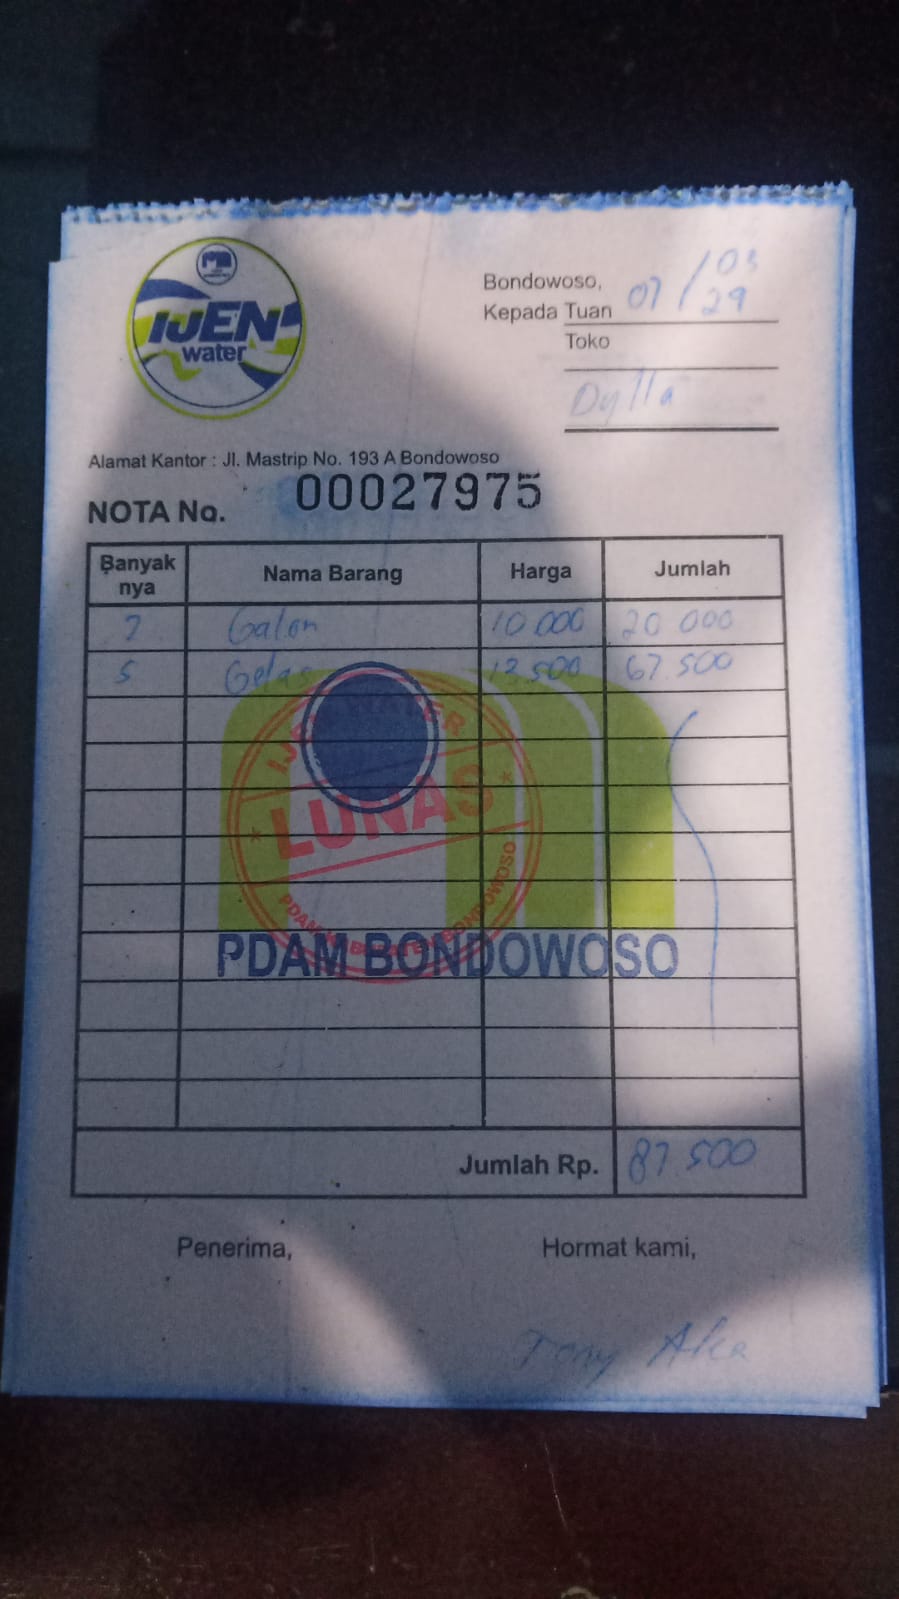 IJEN
water
Bondowoso, 07/03
Kepada Tuan 29
Toko
Dylla
Alamat Kantor : Jl. Mastrip No. 193 A Bondowoso
NOTA No. 00027975
Banyak nya Nama Barang Harga Jumlah
2 Galon 10 000 20 000
5 Gelas 13.500 67.500
IJEN WATER
LUNAS
PDAM BONDOWOSO
PDAM BONDOWOSO
Jumlah Rp. 87 500
Penerima, Hormat kami,
Tony